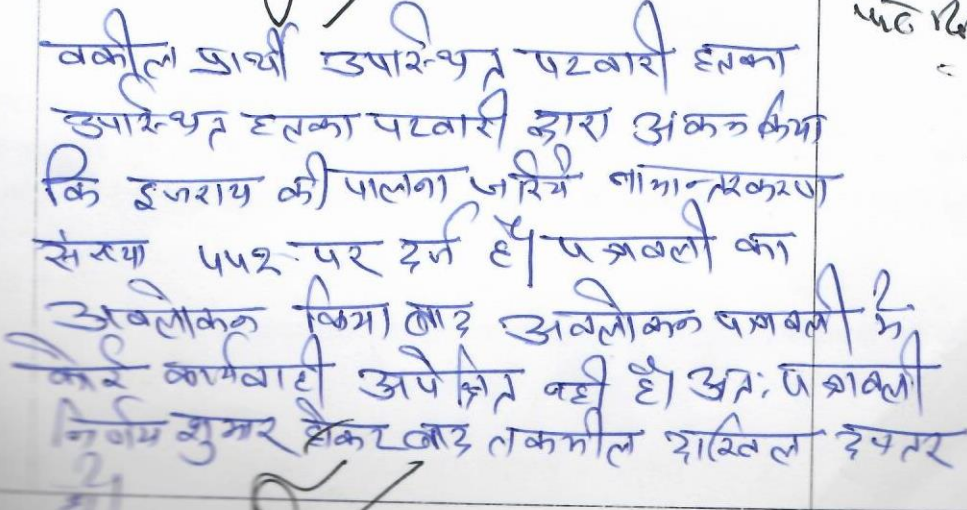 वकील प्रार्थी उपस्थित पटवारी हल्का
उपस्थित हल्का पटवारी द्वारा अंकन किया
कि इजराय की पालना जरिये नामान्तरकरण
संख्या ५५२ पर दर्ज है। पत्रावली का
अवलोकन किया बाद अवलोकन पत्रावली में
कोई कार्यवाही अपेक्षित नही है। अतः पत्रावली
निर्णय शुमार होकर बाद तकमील दाखिल दफ्तर